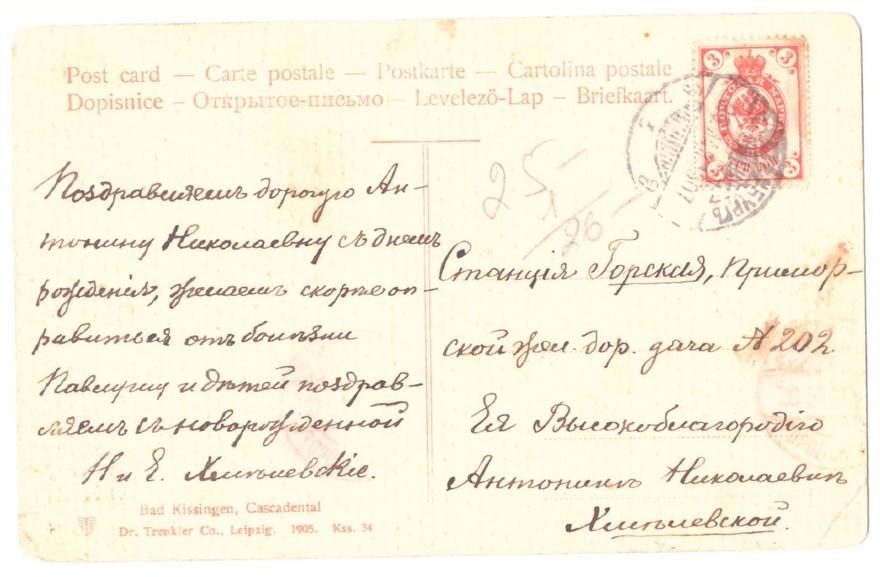 Post card — Carte postale — Postkarte — Cartolina postale
Dopisnice — Открытое-письмо — Levelező-Lap — Briefkaart.
3 3
3 3
25/1
26
Поздравляемъ дорогую Ан-
тонину Николаевну съ днемъ
рожденія, желаемъ скорѣе оп-
равиться отъ болѣзни
и дѣтей поздрав-
ляемъ съ новорожденной
Н и Е. Хмѣлевскіе.
Станція Горская, Примор-
ской жел. дор. дача № 202.
Ея Высокоблагородію
Антонинѣ Николаевнѣ
Хмѣлевской.
Bad Kissingen, Cascadental
Dr. Trenkler Co., Leipzig. 1905. Kss. 34